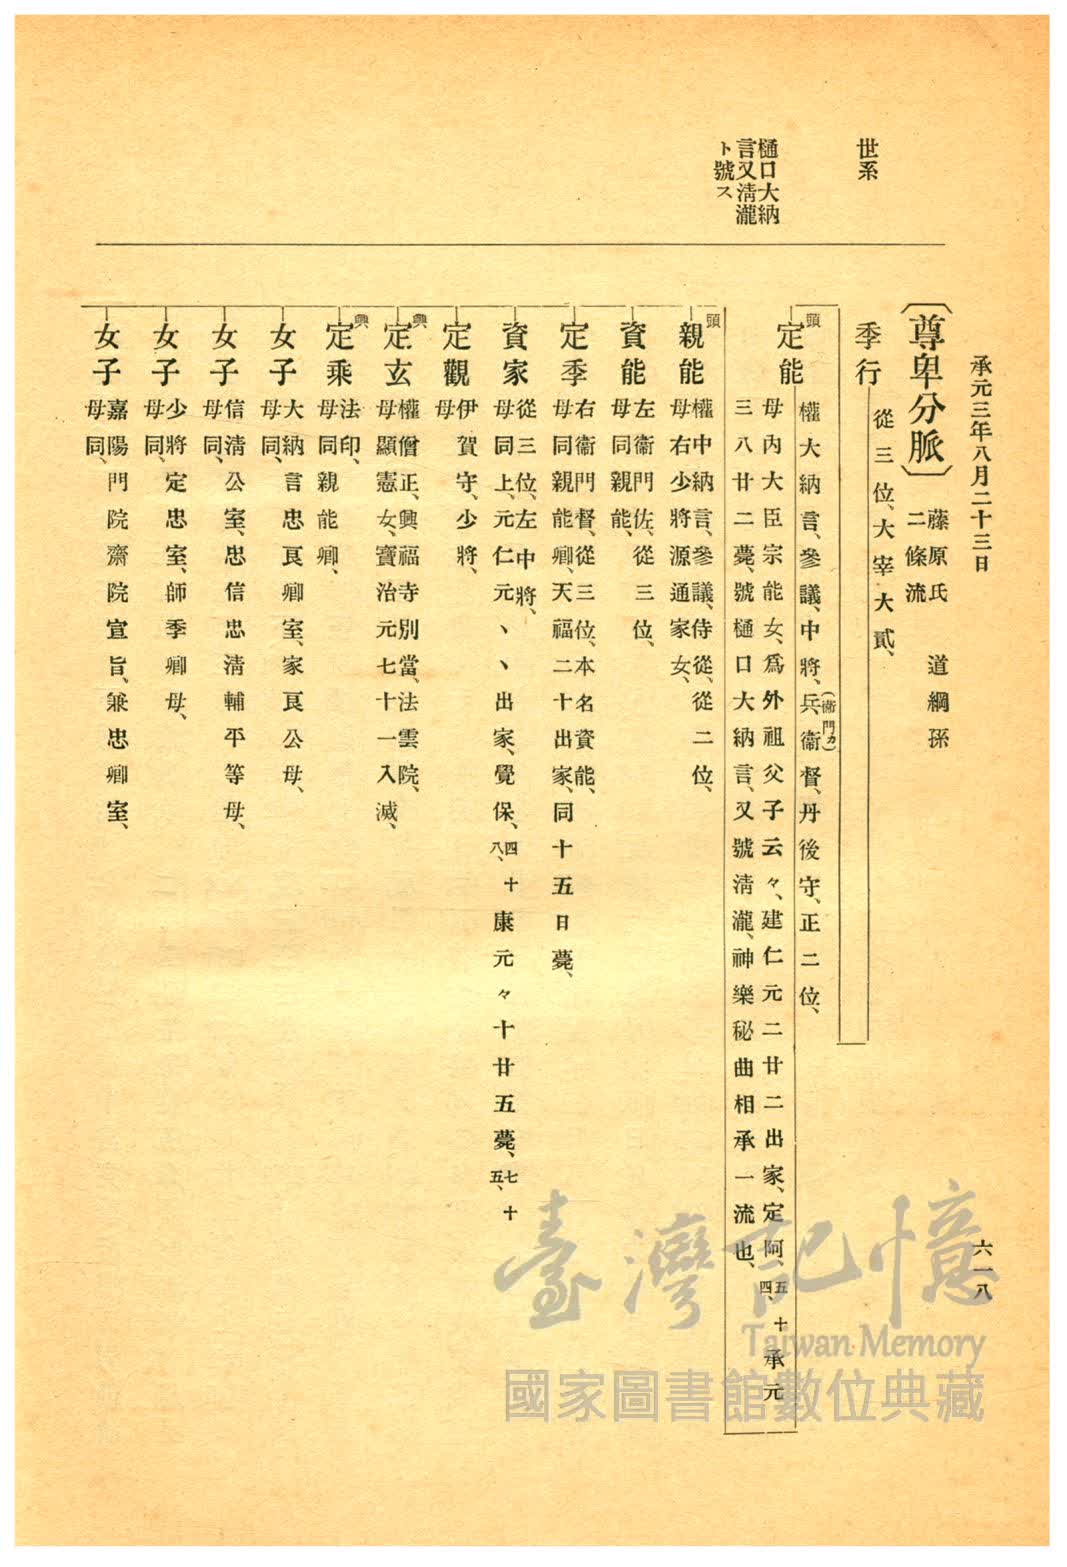 承元三年八月二十三日
六一八
世系
樋口大納
言又淸瀧
ト號ス
〔尊卑分脈〕
藤原氏 道綱孫
二條流
季行
從三位、大宰大貳、
頭
定能
權大納言、參議、中將、兵衞督、丹後守、正二位、
(衞門カ)
母內大臣宗能女、爲外祖父子云々、建仁元二廿二出家、定阿、五十四、承元
三八廿二薨、號樋口大納言、又號淸瀧、神樂秘曲相承一流也、
頭
親能
權中納言、參議、侍從、從二位、
母右少將源通家女、
資能
左衞門佐、從三位、
母同親能、
定季
右衞門督、從三位、本名資能、
母同親能卿、天福二十出家、同十五日薨、
資家
從三位、左中將、
母同上、元仁元、、出家、覺保、四十八、康元々十廿五薨、七十五、
定觀
伊賀守、少將、
母
興
定玄
權僧正、興福寺別當、法雲院、
母顯憲女、寶治元七十一入滅、
興
定乘
法印、
母同親能卿、
女子
大納言忠良卿室、家良公母、
母同、
女子
信淸公室、忠信忠淸輔平等母、
母同、
女子
少將定忠室、師季卿母、
母同、
女子
嘉陽門院齋院宣旨、兼忠卿室、
母同、
臺灣記憶
Taiwan Memory
國家圖書館數位典藏